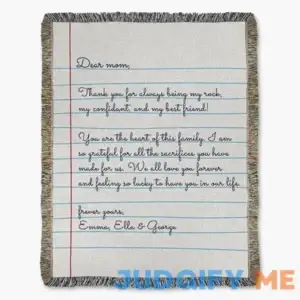 Dear mom,
Thank you for always being my rock,
my confidant, and my best friend!
You are the heart of this family. I am
so grateful for all the sacrifices you have
made for us. We all love you forever
and feeling so lucky to have you in our life.
frever yours,
Emma, Ella & George
JUDGIFY ME